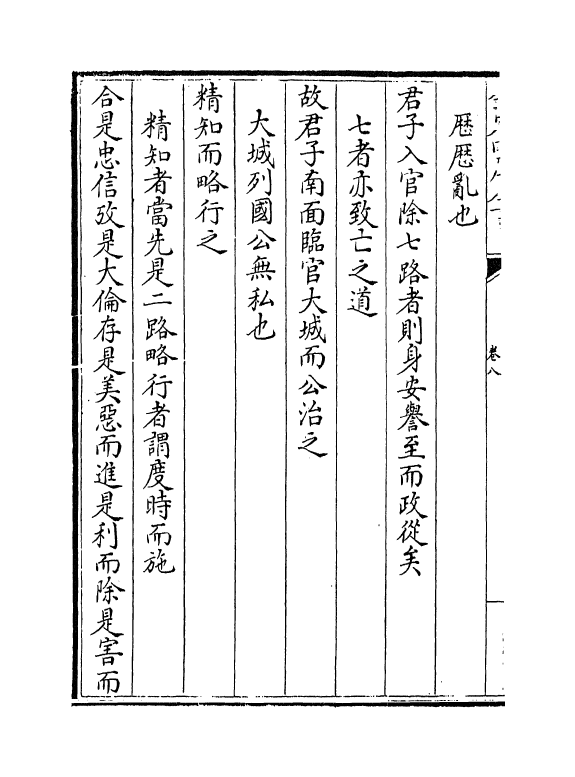 卷八
歴歴亂也
君子入官除七路者則身安譽至而政從矣
七者亦致亡之道
故君子南面臨官大城而公治之
大城列國公無私也
精知而略行之
精知者當先是二路略行者謂度時而施
合是忠信攷是大倫存是美惡而進是利而除是害而